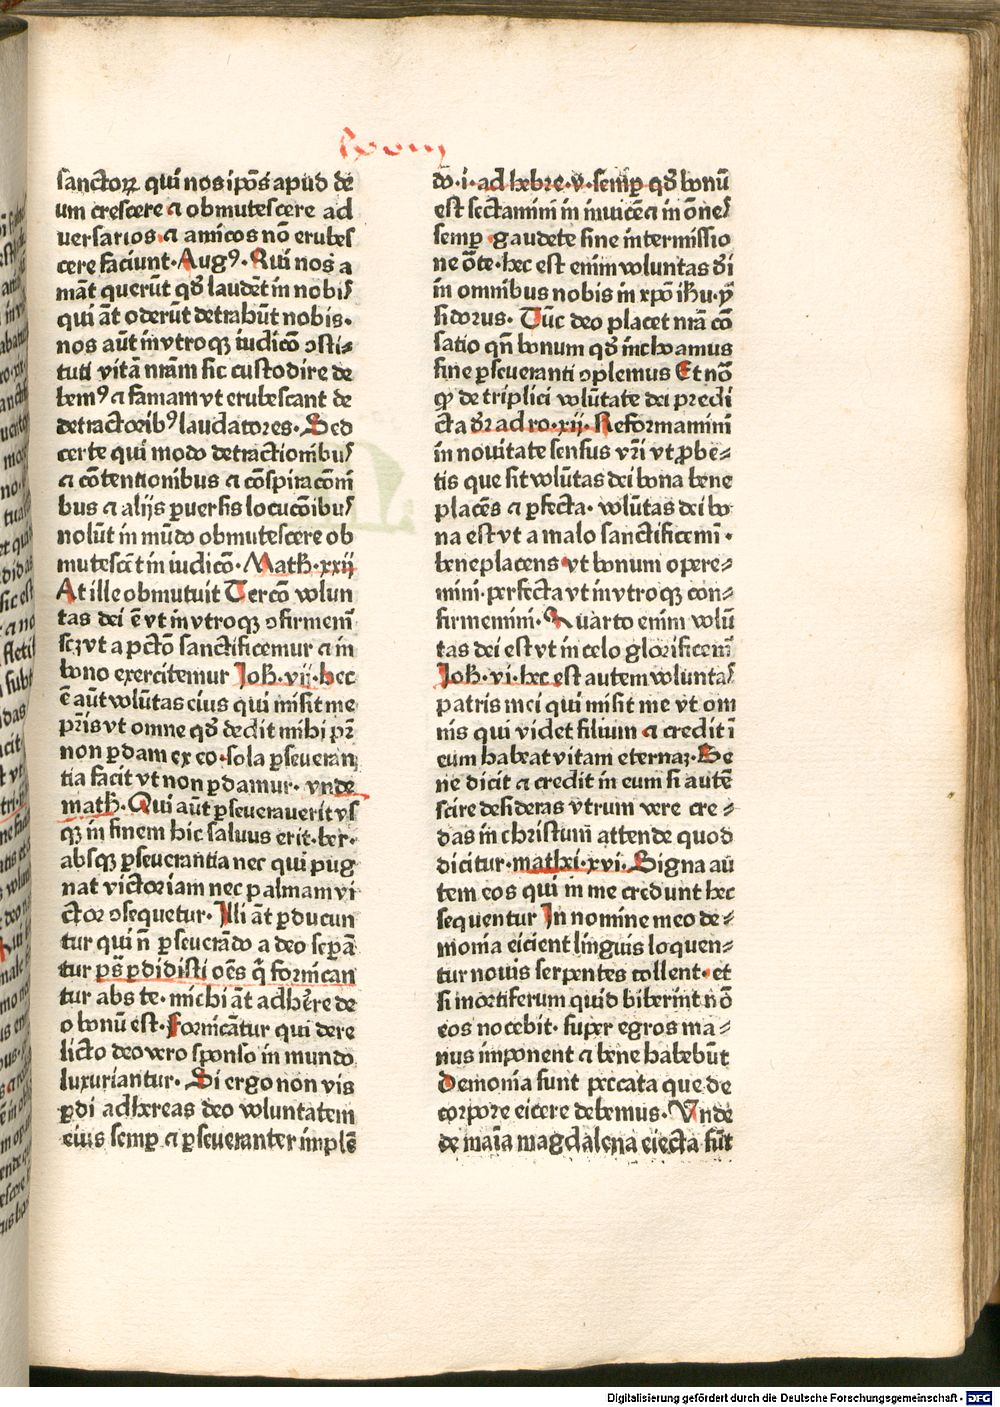 lxviij
sanctoꝝ qui nos ip̄os apud de
um crescere ⁊ obmutescere ad
versarios ⁊ amicos nō erubes
cere faciunt· Augꝰ· Qui nos a
māt querūt qḋ laudēt in nobis
qui āt oderūt detrahūt nobis·
nos aūt in vtroqꝫ iudicō ↄsti⸗
tuti vitā nrāꝫ sic custodire de
bemꝰ ⁊ famam vt erubescant de
detractoribꝰ laudatores· Sed
certe qui modo detractionibus
⁊ cōtentionibus ⁊ cōspiracōni
bus ⁊ alijs ꝑuersis locucōibus
nolūt in mūdo obmutescere ob
mutescēt in iudicō· Math·xxij
At ille obmutuit Tercō volun
tas dei ē vt in vtroqꝫ ↄfirmem̄
scꝫ vt a pctō sanctificemur ⁊ in
bono exercitemur Joh·vij·hec
ē aūt volūtas eius qui misit me
pr̄is vt omne qḋ dedit mihi pr̄
non ꝑdam ex eo·sola ꝑseueran
tia facit vt non ꝑdamur· vnde
math·Qui aūt ꝑseuerauerit vs
qꝫ in finem hic saluus erit·ber·
absqꝫ ꝑseuerantia nec qui pug
nat victoriam nec palmam vi
ctor ↄsequetur· Illi āt ꝑducun
tur qui n̄ ꝑseuerādo a deo sepā
tur ps̄ ꝑdidisti oēs q̄ fornican
tur abs te· michi āt adherē de
o bonū est·Fornicātur qui dere
licto deo vero sponso in mundo
luxuriantur· Si ergo non vis
ꝑdi adhereas deo voluntatem
eius semꝑ ⁊ ꝑseueranter implē
do·i·ad hebre·v·semꝑ qḋ bonū
est sectamini in inuicē ⁊ in ōnes
semꝑ gaudete sine intermissio
ne ōte·hec est enim voluntas di
in omnibus nobis in xpō ihu·ẏ
sidorus· Tūc deo placet nrā cō
satio qn̄ bonum qḋ inchoamus
fine ꝑseueranti ↄplemus Et nō
qꝫ de triplici volūtate dei predi
cta dr̄ ad ro·xij· Reformamini
in nouitate sensus vr̄i vt ꝓbe⸗
tis que sit volūtas dei bona bene
placēs ⁊ ꝑfecta· volūtas dei bo
na est vt a malo sanctificemi·
beneplacens vt bonum opere⸗
mini·perfecta vt in vtroqꝫ con⸗
firmemini· Quarto enim volū
tas dei est vt in celo glorificem̄
Joh·vi·hec est autem voluntas
patris mei qui misit me vt om
nis qui videt filium ⁊ credit ī
eum habeat vitam eternaꝫ·Be
ne dicit ⁊ credit in eum si autē
scire desideras vtrum vere cre⸗
das in christum attende quod
dicitur·mathei·xvi·Signa aū
tem eos qui in me credunt hec
sequentur In nomine meo de⸗
monia eicient linguis loquen⸗
tur nouis serpentes tollent·et
si mortiferum quid biberint nō
eos nocebit·super egros ma⸗
nus imponent ⁊ bene habebūt
Demonia sunt peccata que de
corpore eicere debemus·Vnde
de maīa magdalena eiecta sūt
Digitalisierung gefördert durch die Deutsche Forschungsgemeinschaft - DFG